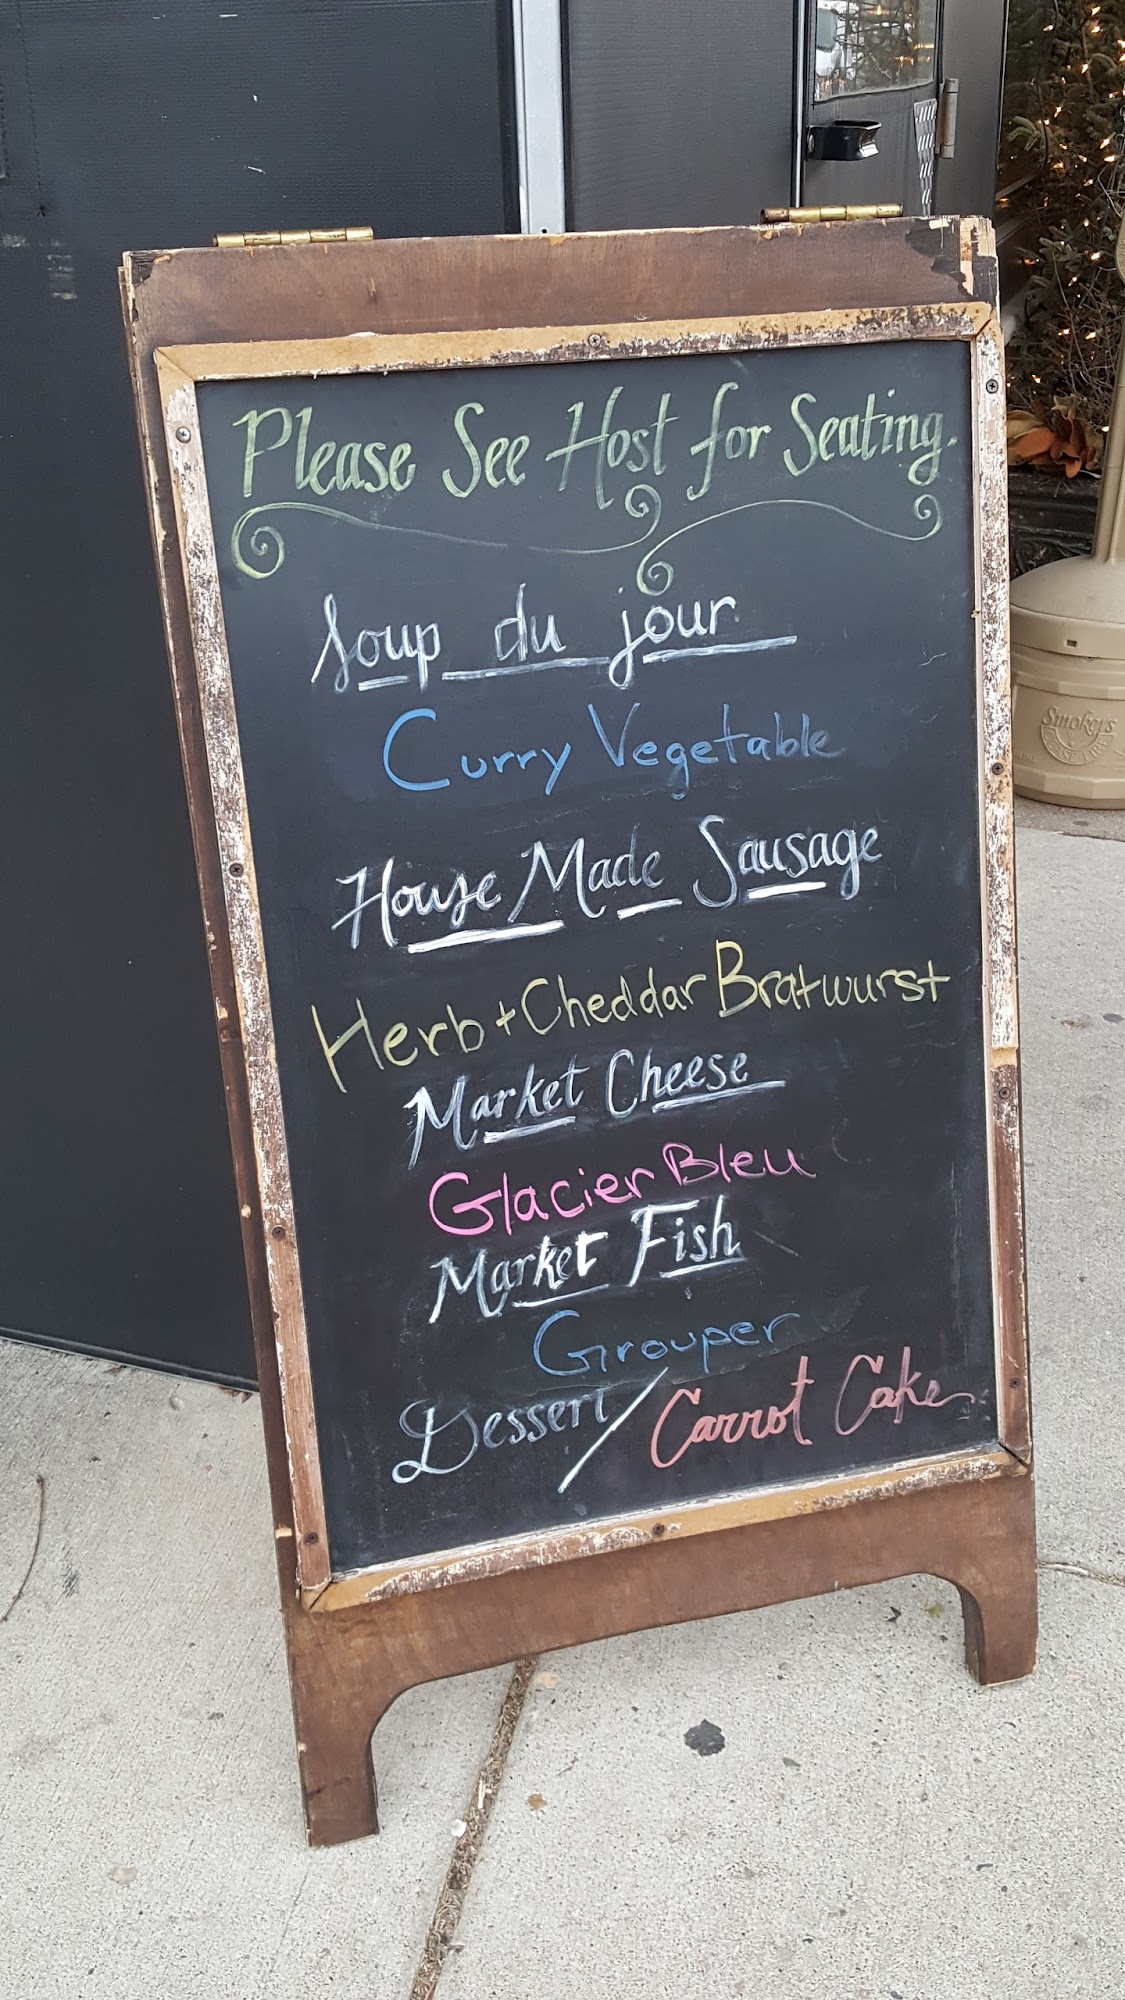 Please See Host for Seating.
Soup du jour
Curry Vegetable
House Made Sausage
Herb + Cheddar Bratwurst
Market Cheese
Glacier Bleu
Market Fish
Grouper
Dessert / Carrot Cake
Smokers